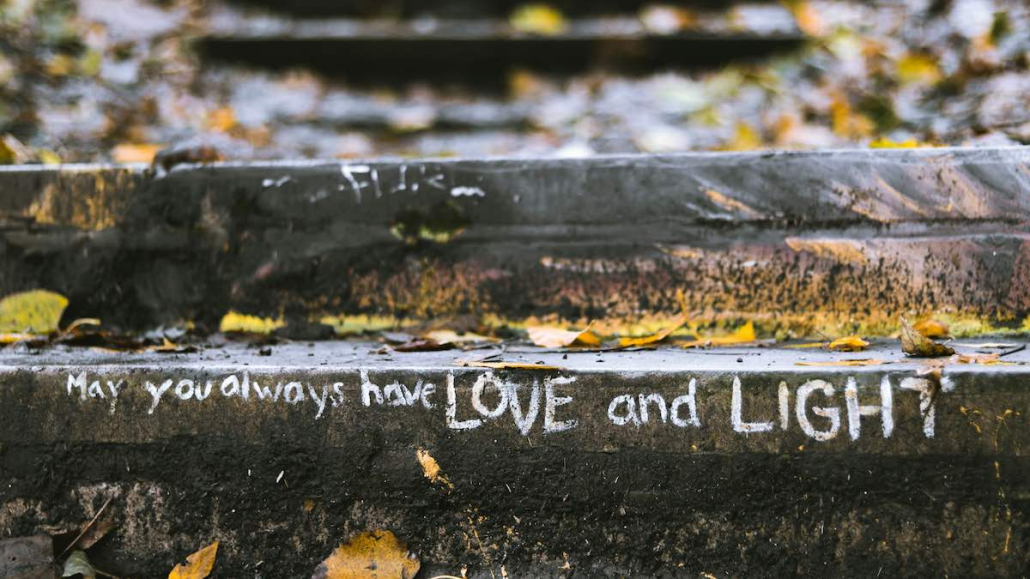 May you always have LOVE and LIGHT